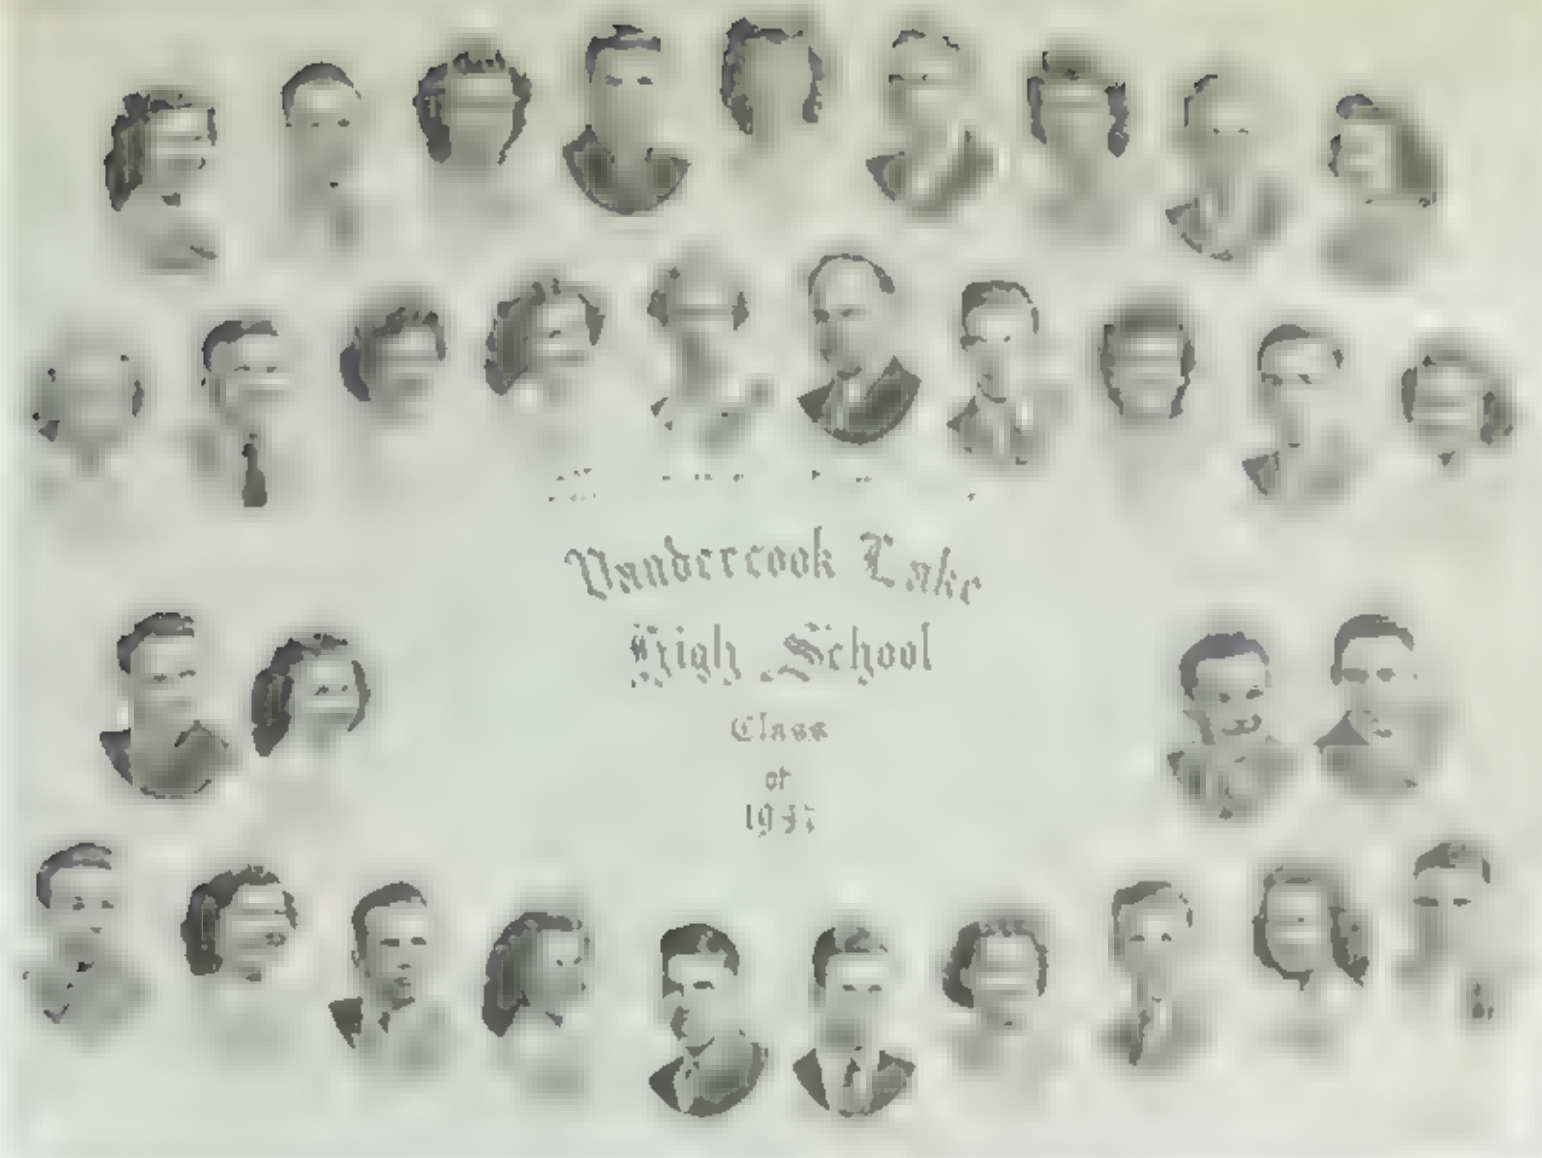 Vandercook Lake
High School
Class
of